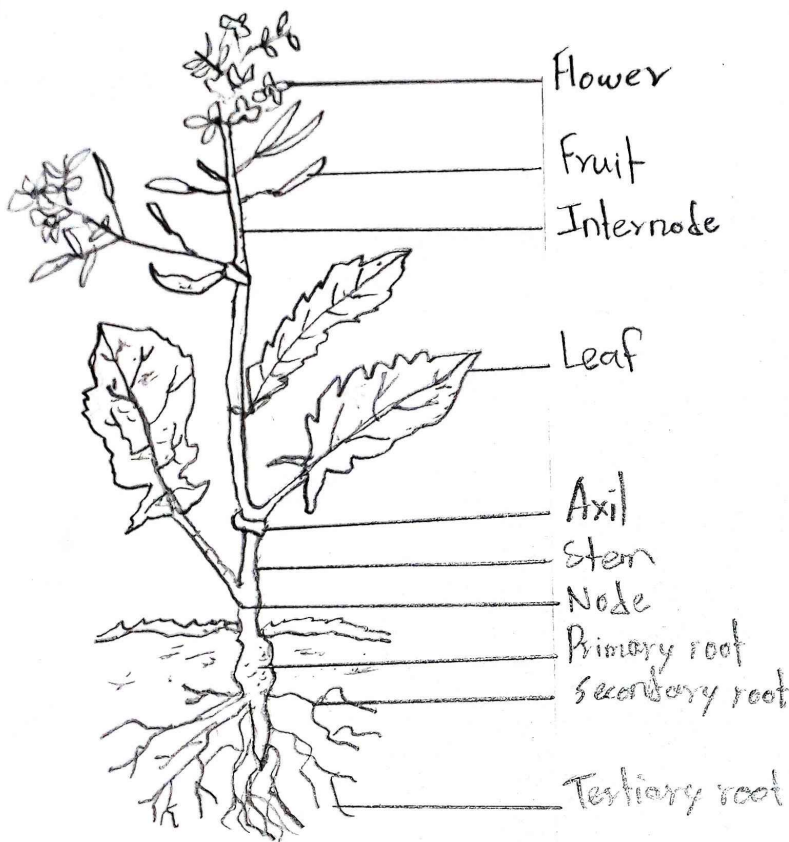 Flower
Fruit
Internode
Leaf
Axil
Stem
Node
Primary root
Secondary root
Tertiary root